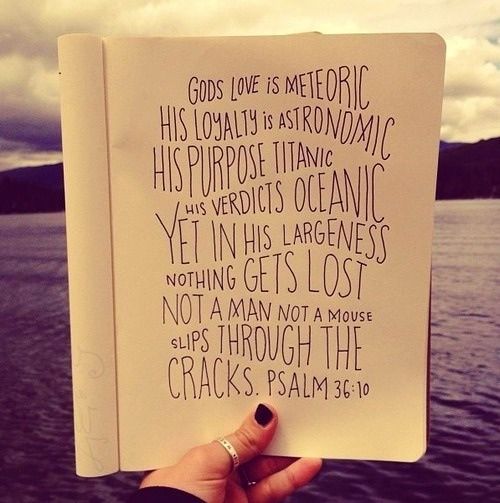 GODS LOVE iS METEORIC
HIS LOYALTY iS ASTRONOMIC
HIS PURPOSE TITANIC
HIS VERDICTS OCEANIC
YET IN HIS LARGENESS
NOTHING GETS LOST
NOT A MAN NOT A MOUSE
SLIPS THROUGH THE
CRACKS. PSALM 36:10